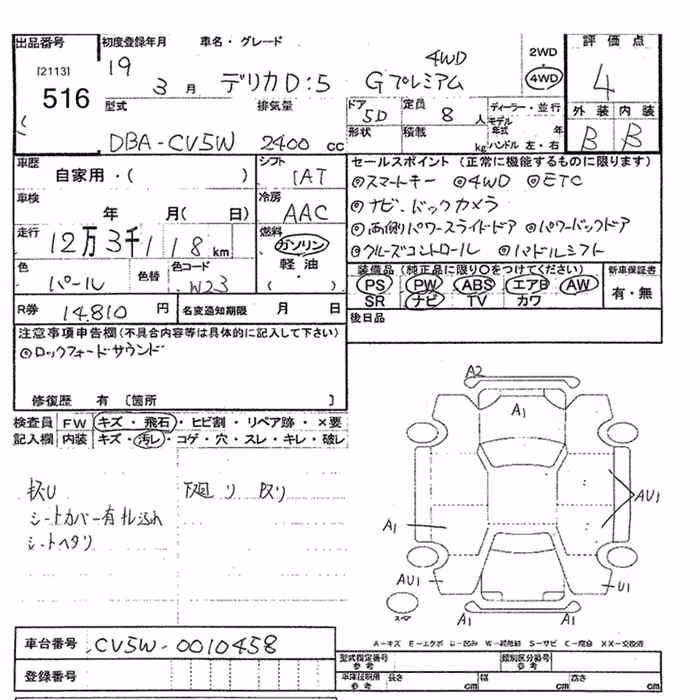 出品番号 初度登録年月 車名・グレード 評価点
[2113] 19 3月 デリカD:5 4WD Gプレミアム 2WD・4WD 4
516 型式 排気量 ドア 5D 定員 8人 ディーラー・並行 外装 内装
形状 積載 kg モデル年式 年 ハンドル 左・右 B B
DBA-CV5W 2400 cc
車歴 自家用・( ) シフト 1AT セールスポイント (正常に機能するものに限ります)
車検 年 月( 日) 冷房 AAC ◎スマートキー ◎4WD ◎ETC
◎ナビ.バックカメラ
走行 12万3千118km 燃料 ガソリン ◎両側パワースライドドア ◎パワーバックドア
軽油 ( ) ◎クルーズコントロール ◎パドルシフト
色 パール 色替 色コード W23 装備品 (純正品に限り○をつけてください) 新車保証書
PS PW ABS エアB AW 有・無
R券 14.810円 名変通知期限 月 日 SR ナビ TV カワ
注意事項申告欄(不具合内容等は具体的に記入して下さい) 後日品
◎ロックフォードサウンド
修復歴 有 [箇所 ]
検査員 FW キズ・飛石・ヒビ割・リペア跡・×要
記入欄 内装 キズ・汚レ・コゲ・穴・スレ・キレ・破レ
シートカバー有
シートヘタリ
A2
A1
AU1
A1
AU1 U1
A1 A1
A-キズ E-エクボ U-凹み W-補修跡 S-サビ C-腐食 XX-交換済
車台番号 CV5W-0010458
登録番号
型式指定番号 参考 類別区分番号 参考
車庫証明用 参考 長さ cm 幅 cm 高さ cm